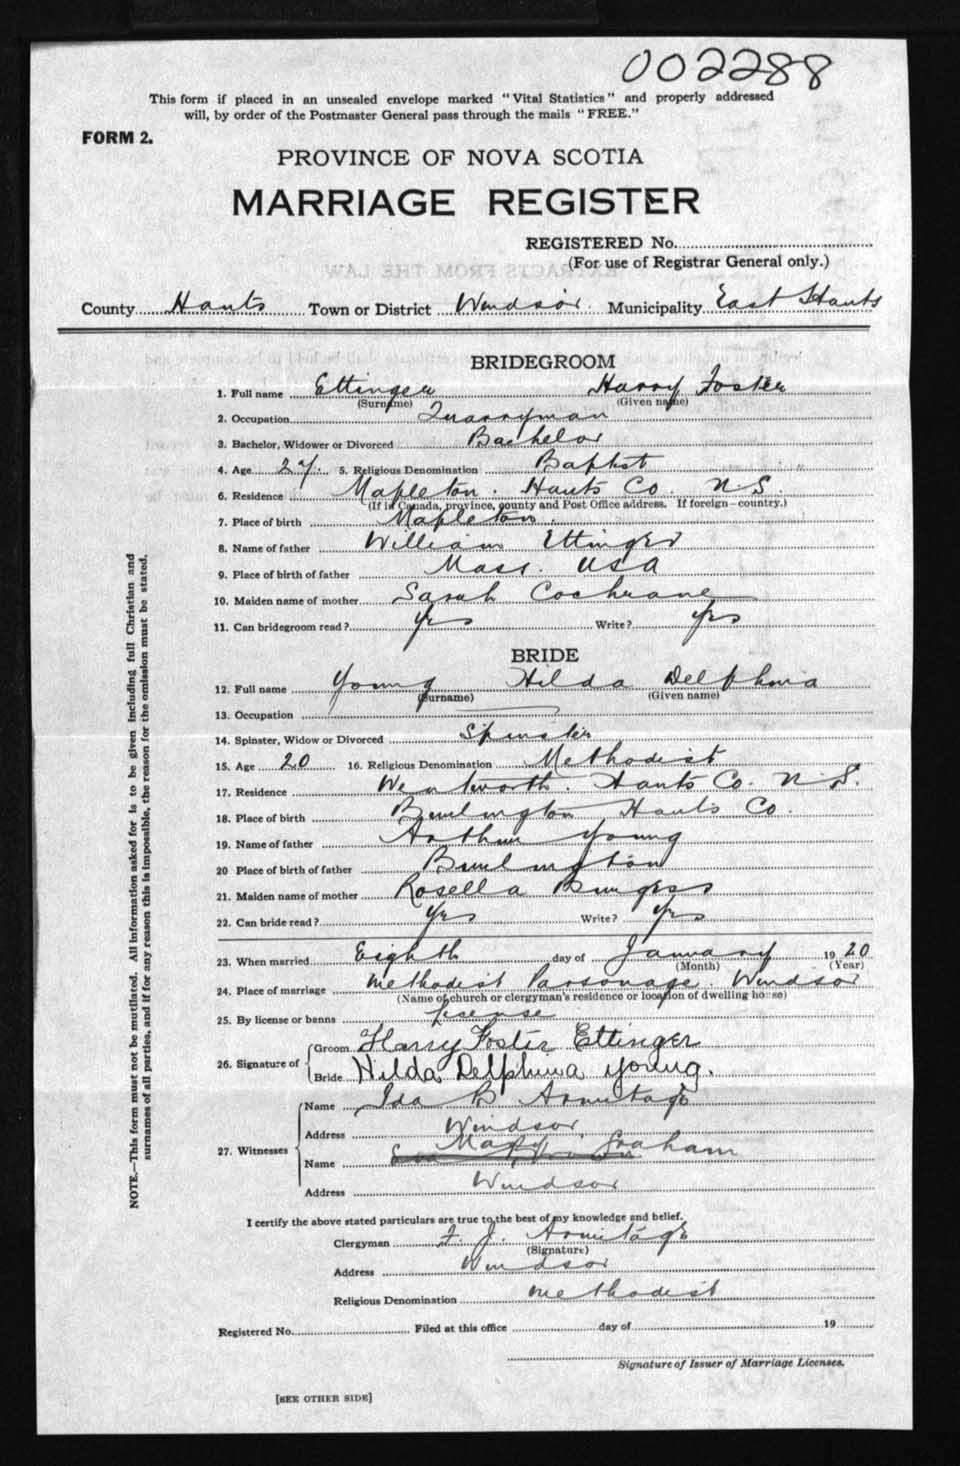 002288
This form if placed in an unsealed envelope marked "Vital Statistics" and properly addressed
will, by order of the Postmaster General pass through the mails "FREE."
FORM 2.
PROVINCE OF NOVA SCOTIA
MARRIAGE REGISTER
REGISTERED No.
(For use of Registrar General only.)
County Hants Town or District Windsor Municipality East Hants
BRIDEGROOM
1. Full name Ettinger Harry Foster
(Surname) (Given name)
2. Occupation Quarryman
3. Bachelor, Widower or Divorced Bachelor
4. Age 27. 5. Religious Denomination Baptist
6. Residence Mapleton. Hants Co N.S.
(If in Canada, province, county and Post Office address. If foreign—country.)
7. Place of birth Mapleton.
8. Name of father William Ettinger
9. Place of birth of father Mass. USA
10. Maiden name of mother Sarah Cochrane
11. Can bridegroom read? Yes Write? Yes
BRIDE
12. Full name Young Hilda Delphina
(Surname) (Given name)
13. Occupation
14. Spinster, Widow or Divorced Spinster
15. Age 20 16. Religious Denomination Methodist
17. Residence Wentworth. Hants Co. N.S.
18. Place of birth Burlington Hants Co.
19. Name of father Arthur Young
20 Place of birth of father Burlington
21. Maiden name of mother Rosella Burgess
22. Can bride read? Yes Write? Yes
23. When married Eighth day of January 1920
(Month) (Year)
24. Place of marriage Methodist Parsonage. Windsor
(Name of church or clergyman's residence or location of dwelling house)
25. By license or banns License
26. Signature of Groom Harry Foster Ettinger
Bride Hilda Delphina Young.
27. Witnesses
Name Ida B Armitage
Address Windsor
Name Mary Graham
Address Windsor
I certify the above stated particulars are true to the best of my knowledge and belief.
Clergyman F. J. Armitage
(Signature)
Address Windsor
Religious Denomination Methodist
Registered No. Filed at this office day of 19
Signature of Issuer of Marriage Licenses.
[SEE OTHER SIDE]
NOTE.—This form must not be mutilated. All information asked for is to be given including full Christian and
surnames of all parties, and if for any reason this is impossible, the reason for the omission must be stated.